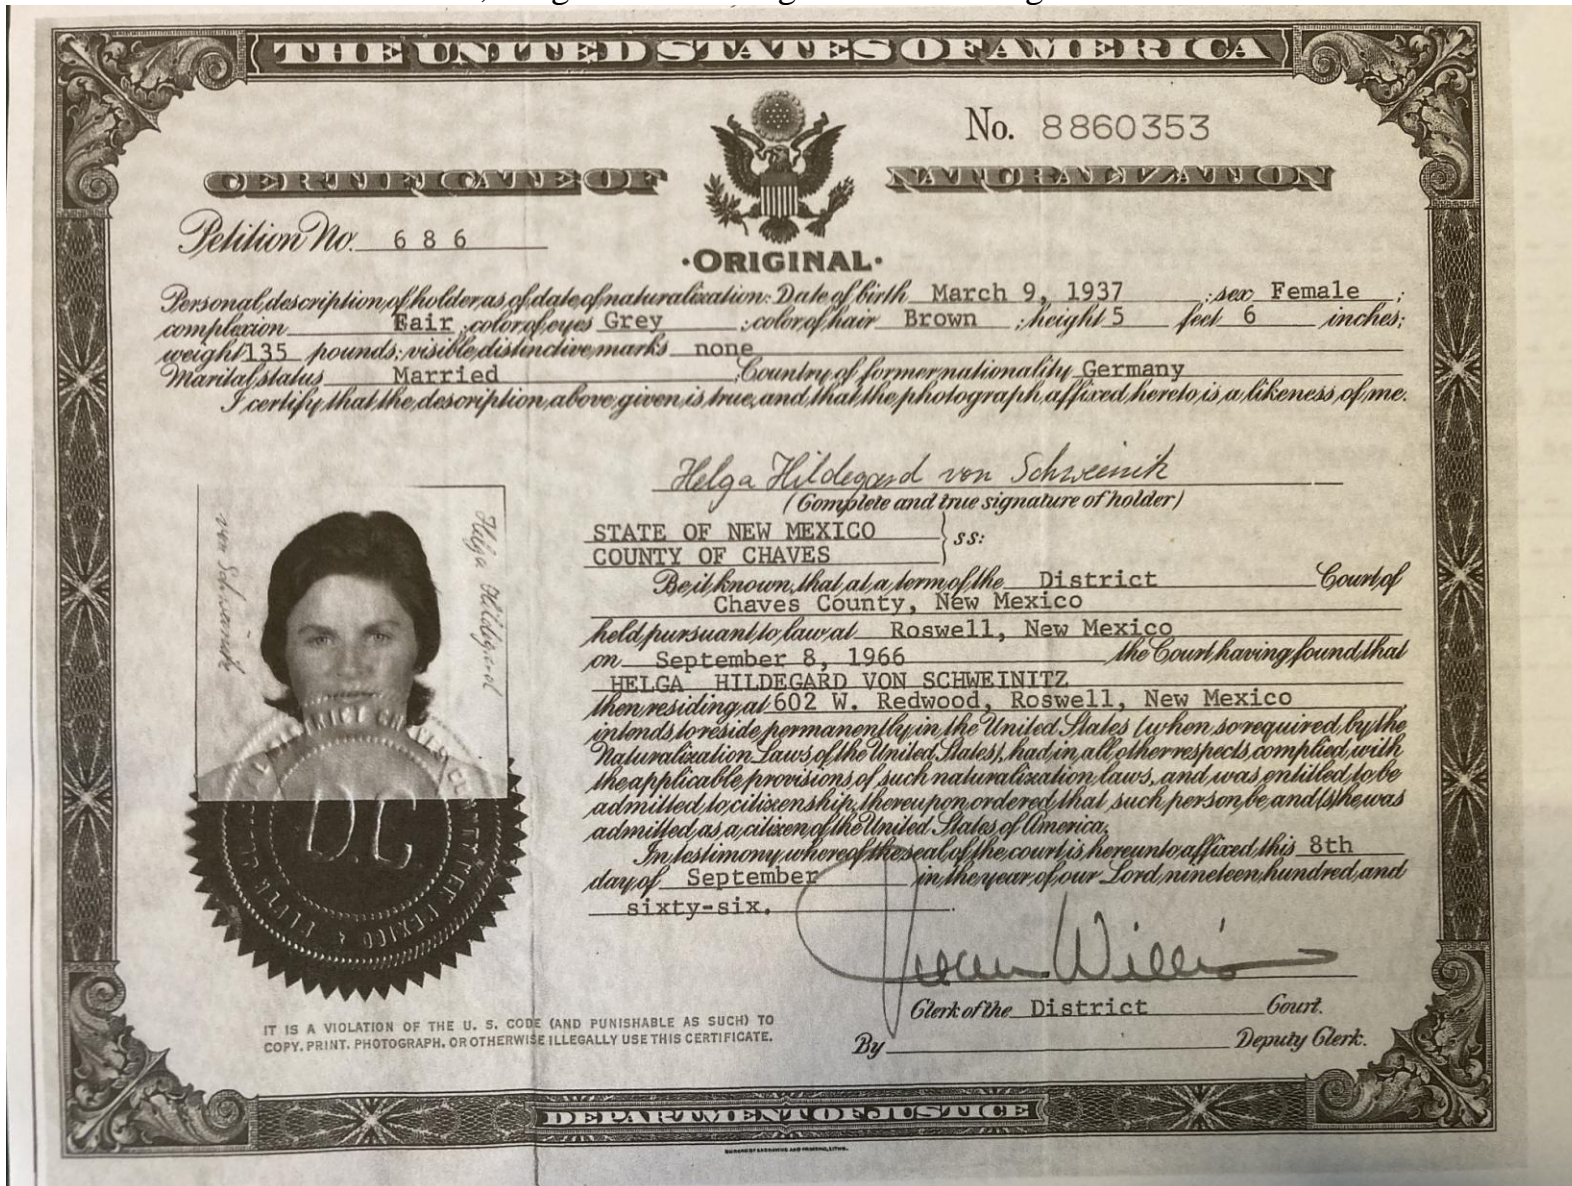 THE UNITED STATES OF AMERICA
No. 8860353
CERTIFICATE OF NATURALIZATION
Petition No. 686
·ORIGINAL·
Personal description of holder as of date of naturalization: Date of birth March 9, 1937 ; sex Female ;
complexion Fair ; color of eyes Grey ; color of hair Brown ; height 5 feet 6 inches;
weight 135 pounds; visible distinctive marks none
Marital status Married ; Country of former nationality Germany
I certify that the description above given is true, and that the photograph affixed hereto is a likeness of me.
Helga Hildegard von Schweinitz
(Complete and true signature of holder)
Helga Hildegard
von Schweinitz
STATE OF NEW MEXICO
COUNTY OF CHAVES
} ss:
Be it known, that at a term of the District Court of
Chaves County, New Mexico
held pursuant to law at Roswell, New Mexico
on September 8, 1966 the Court having found that
HELGA HILDEGARD VON SCHWEINITZ
then residing at 602 W. Redwood, Roswell, New Mexico
intends to reside permanently in the United States (when so required by the
Naturalization Laws of the United States), had in all other respects complied with
the applicable provisions of such naturalization laws, and was entitled to be
admitted to citizenship, thereupon ordered that such person be and (s)he was
admitted as a citizen of the United States of America.
In testimony whereof the seal of the court is hereunto affixed this 8th
day of September in the year of our Lord nineteen hundred and
sixty-six.
Willis
Clerk of the District Court.
By Deputy Clerk.
D.C.
IT IS A VIOLATION OF THE U. S. CODE (AND PUNISHABLE AS SUCH) TO
COPY, PRINT, PHOTOGRAPH, OR OTHERWISE ILLEGALLY USE THIS CERTIFICATE.
DEPARTMENT OF JUSTICE